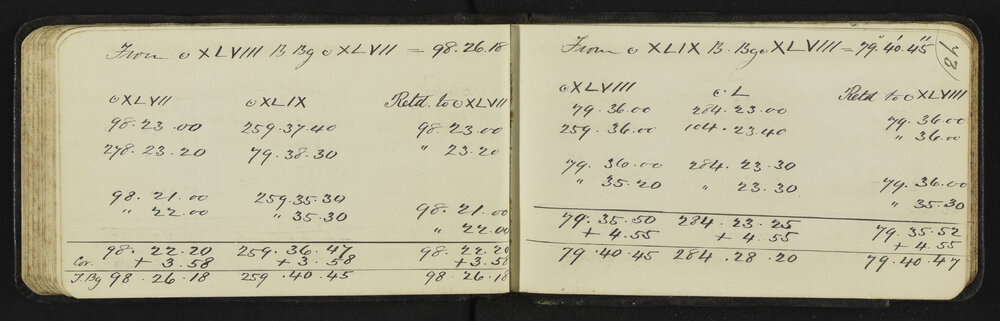 From o XLVIII B. Bg o XLVII = 98.26.18
o XLVII o XLIX Retd. to o XLVII
98.23.00 259.37.40 98.23.00
278.23.20 79.38.30 " 23.20
98.21.00 259.35.30
" 22.00 " 35.30 98.21.00
" 22.00
98.22.20 259.36.47 98.22.20
Cor. + 3.58 + 3.58 + 3.58
T.Bg 98.26.18 259.40.45 98.26.18
73
From o XLIX B. Bg o XLVIII = 79° 40' 45"
o XLVIII o L Retd to o XLVIII
79.36.00 284.23.00 79.36.00
259.36.00 104.23.40 " 36.00
79.36.00 284.23.30
" 35.20 " 23.30 79.36.00
" 35.30
79.35.50 284.23.25 79.35.52
+ 4.55 + 4.55 + 4.55
79.40.45 284.28.20 79.40.47